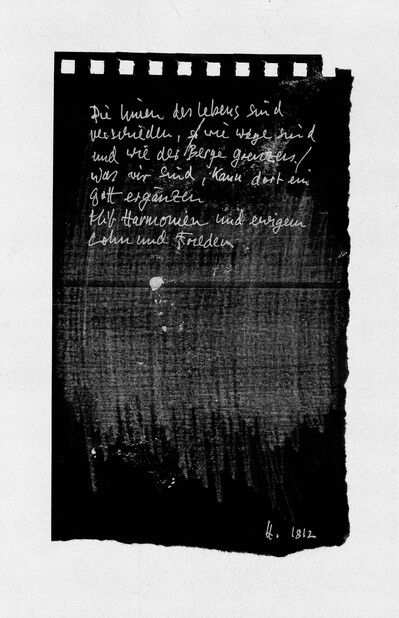 Die Linien des Lebens sind
verschieden, / wie Wege sind
und wie der Berge Grenzen. /
Was wir sind, kann dort ein
Gott ergänzen
Mit Harmonien und ewigem
Lohn und Frieden
H. 1812